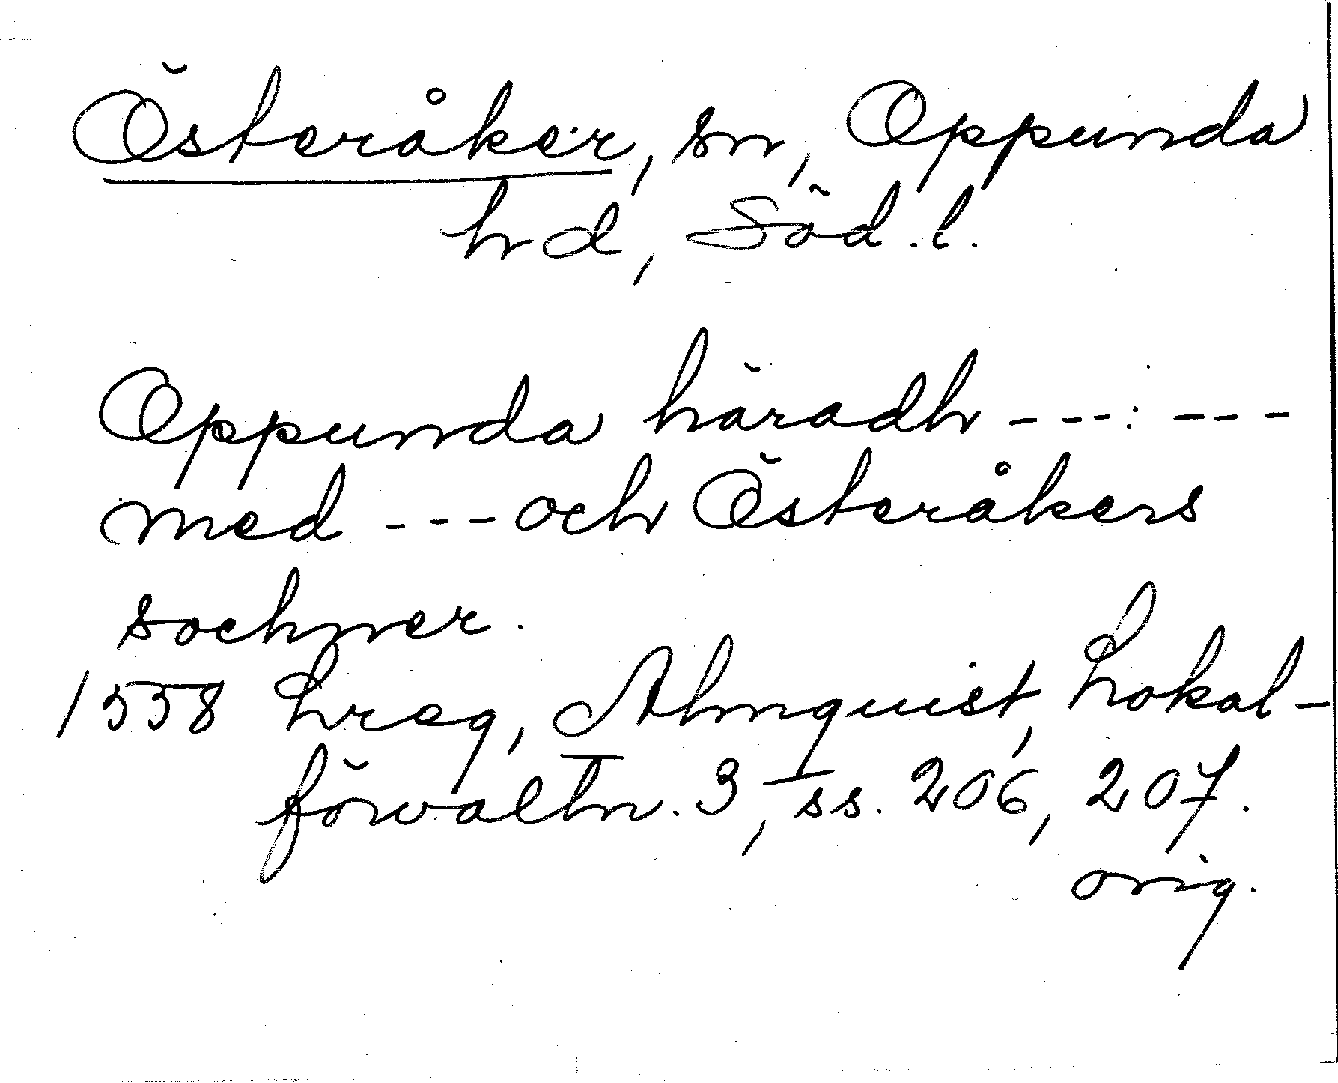 Österåker, sn, Oppunda
hd, Söd.l.
Oppunda häradh ---:---
med --- och Österåkers
sochner.
1558 Lreg, Almquist, Lokal-
förvaltn. 3, ss. 206, 207.
orig.